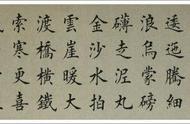 逶迤騰細
浪烏蒙磅
礴走泥丸
金沙水拍
雲崖暖大
渡橋橫鐵
索寒更喜